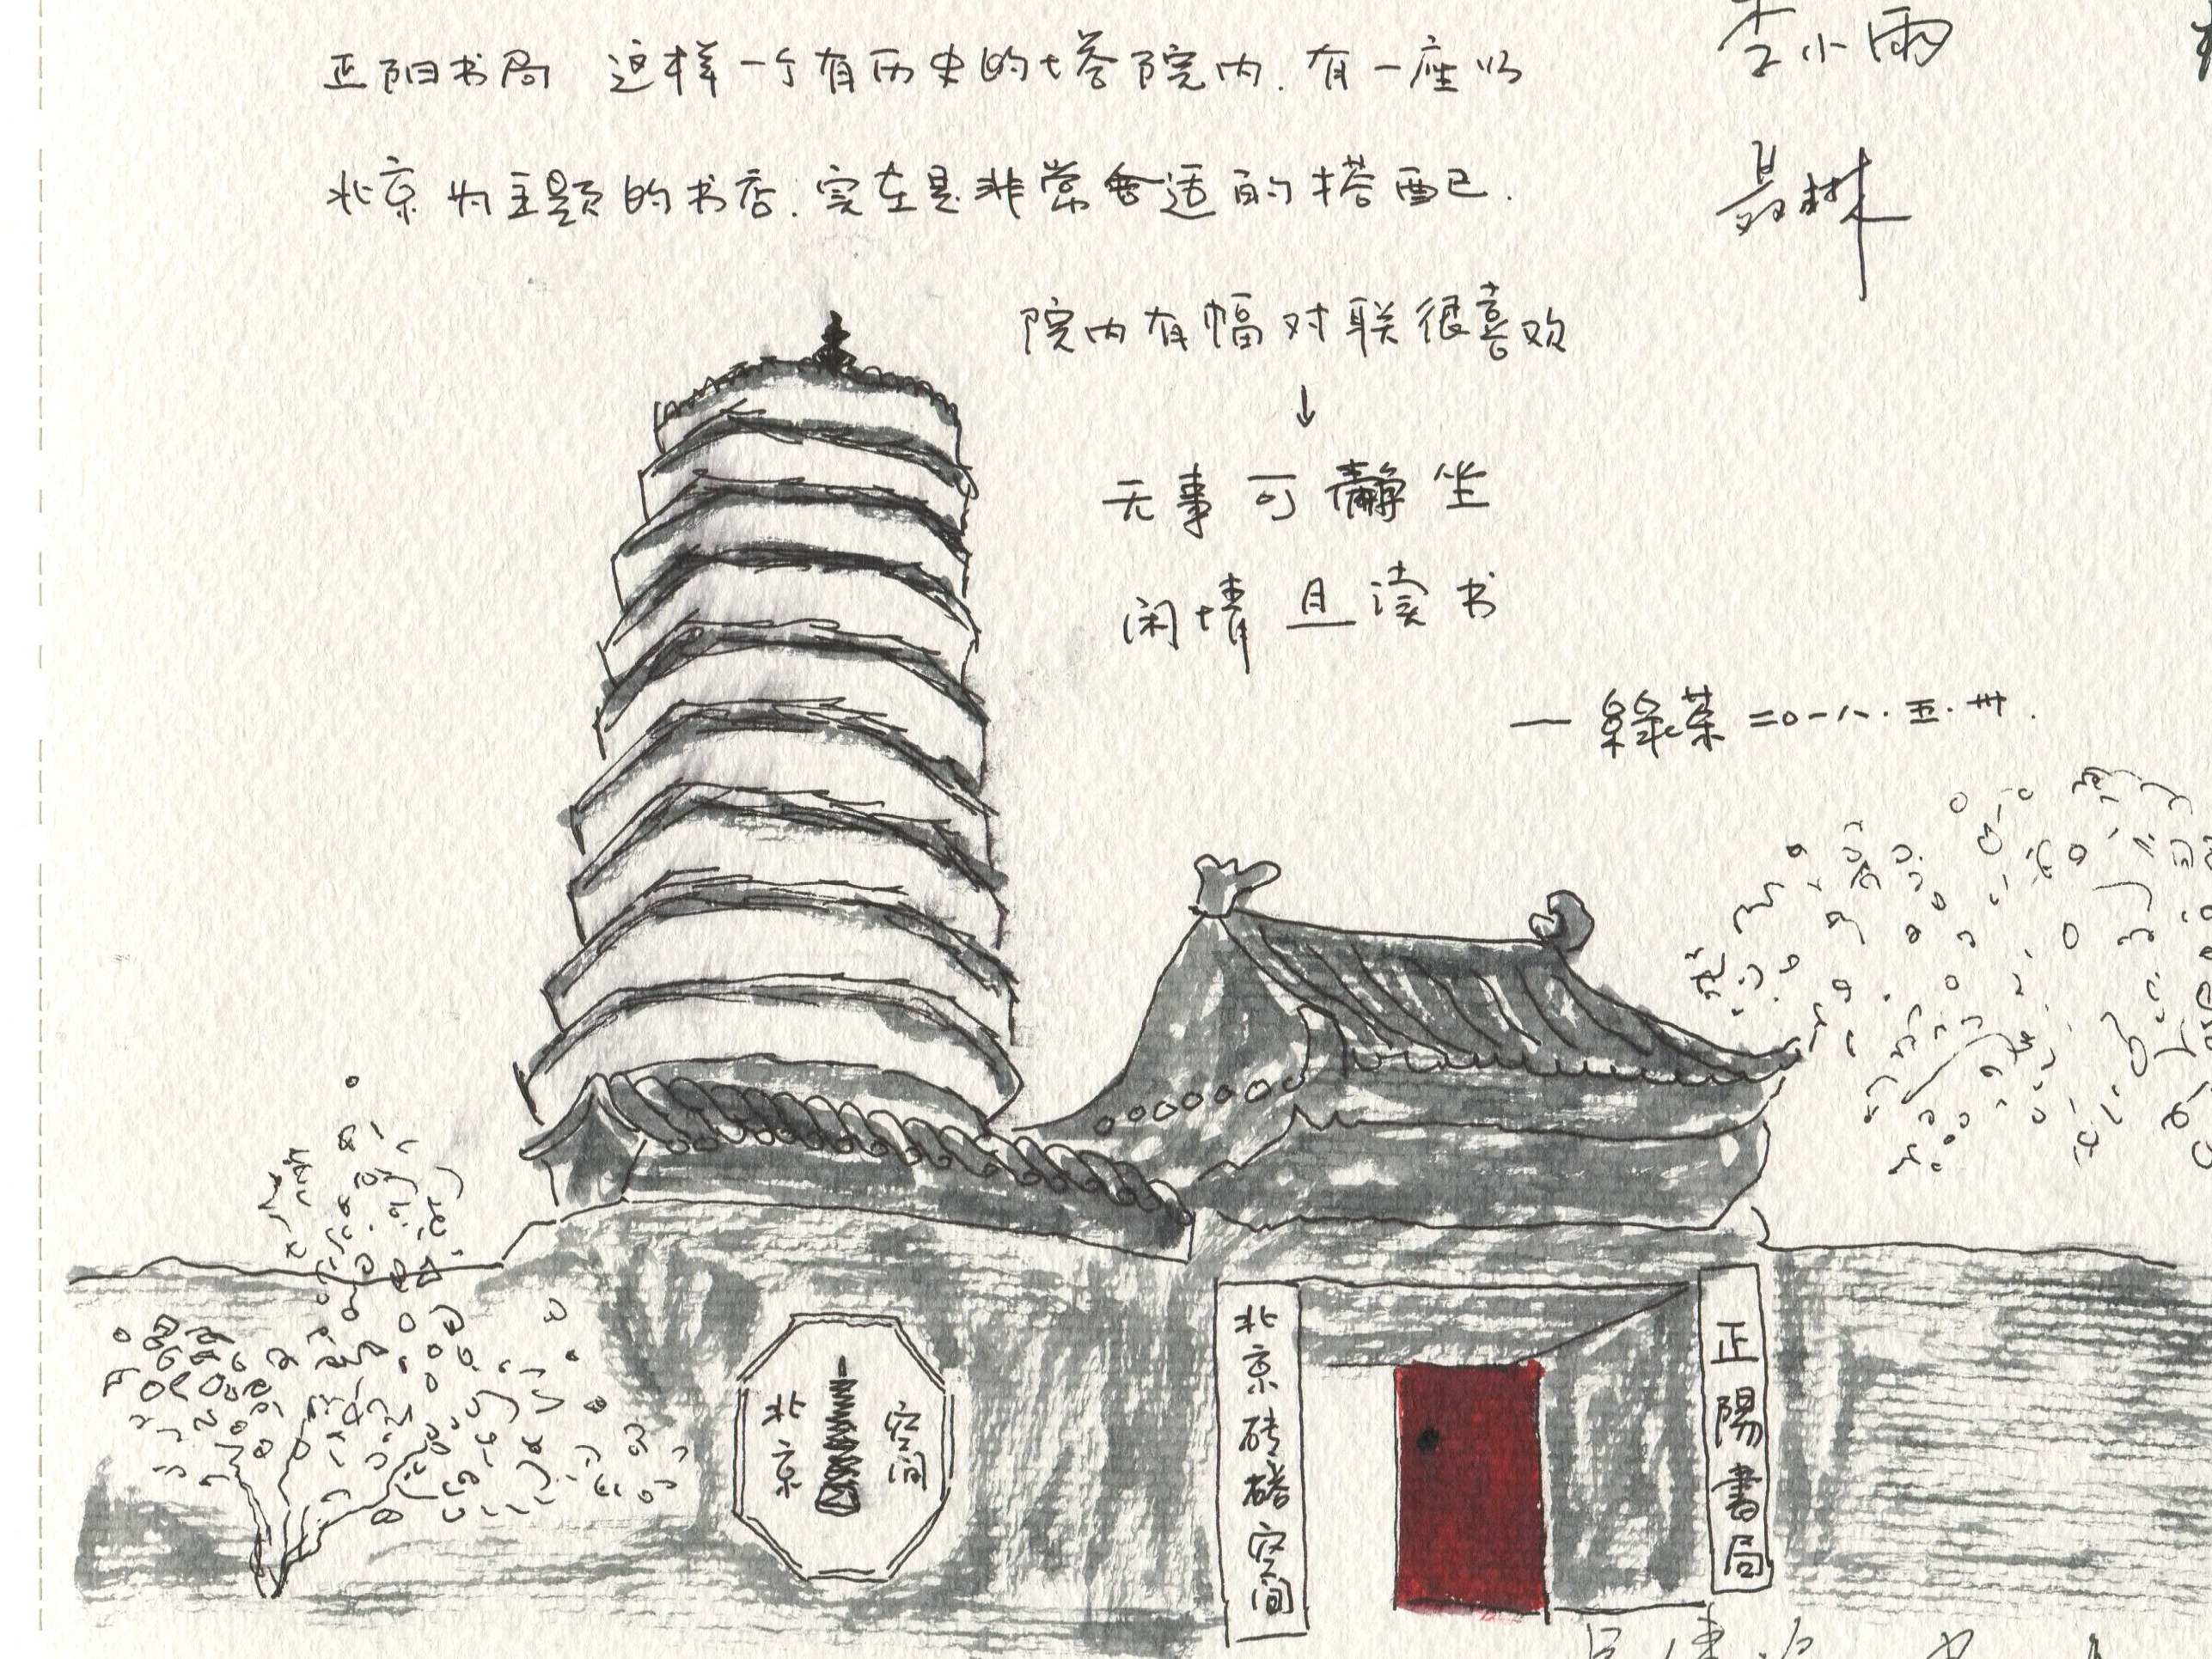 正阳书局 这样一个有历史的塔院内.有一座以
北京为主题的书店.实在是非常合适的搭配已.
院内有幅对联很喜欢
↓
无事可静坐
闲情且读书
— 綠茶 二〇一八.五.卅.
李小雨
聂琳
北京
空间
北京砖塔空间
正陽書局